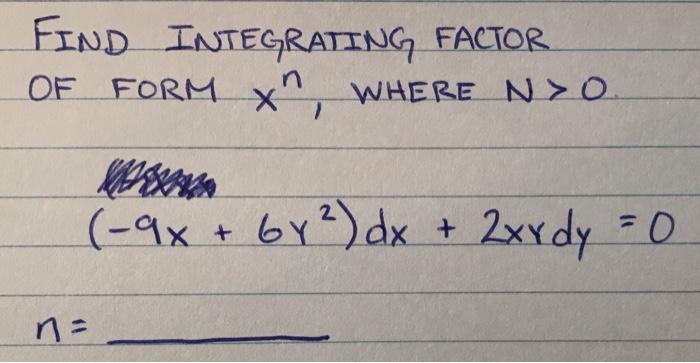 FIND INTEGRATING FACTOR
OF FORM xⁿ, WHERE N > 0
(-9x + 6Y²)dx + 2xYdy = 0
n = ________